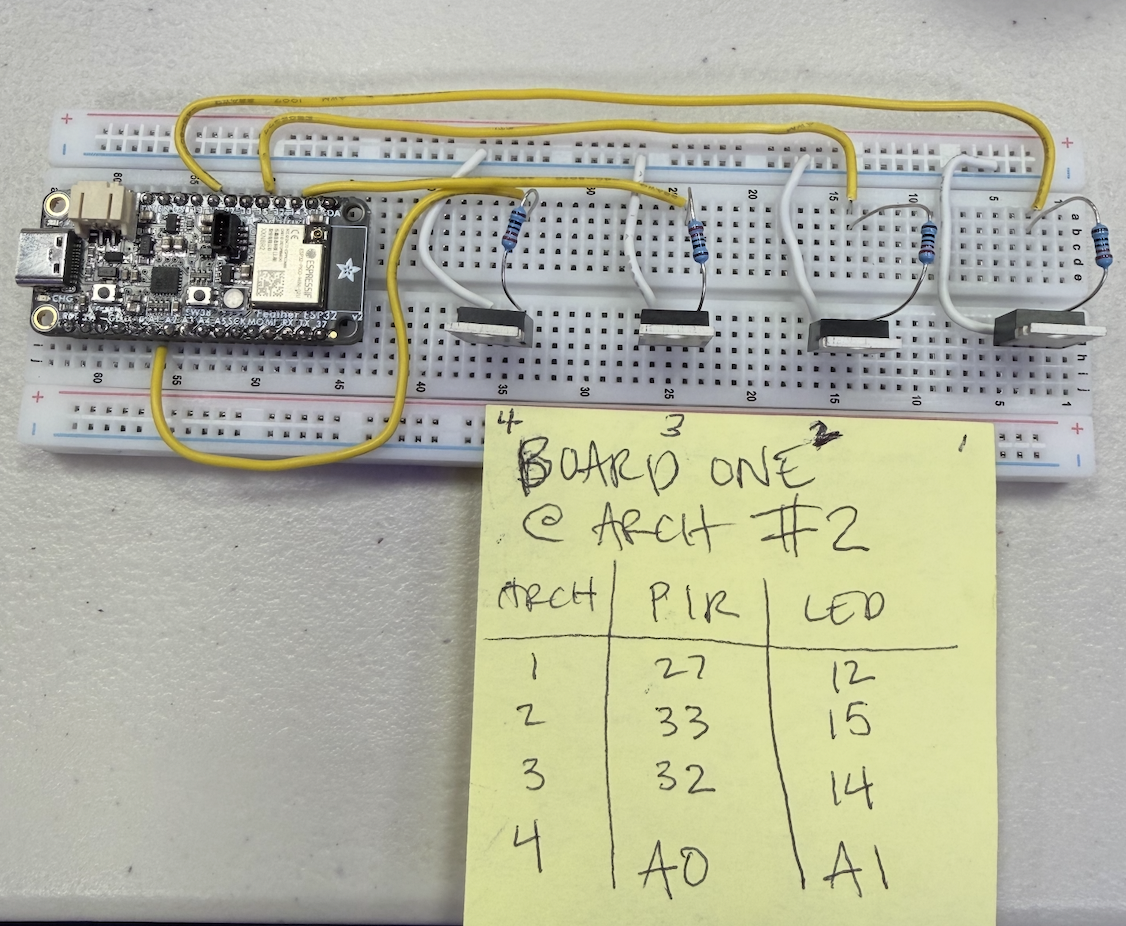 4 3 2 1
BOARD ONE
@ ARCH #2
ARCH PIR LED
1 27 12
2 33 15
3 32 14
4 A0 A1
Feather ESP32 V2
CHG
ESPRESSIF
60 55 50 45 40 35 30 25 20 15 10 5 1
30 25 20 15 10 5 1
a b c d e
h i j
+ -